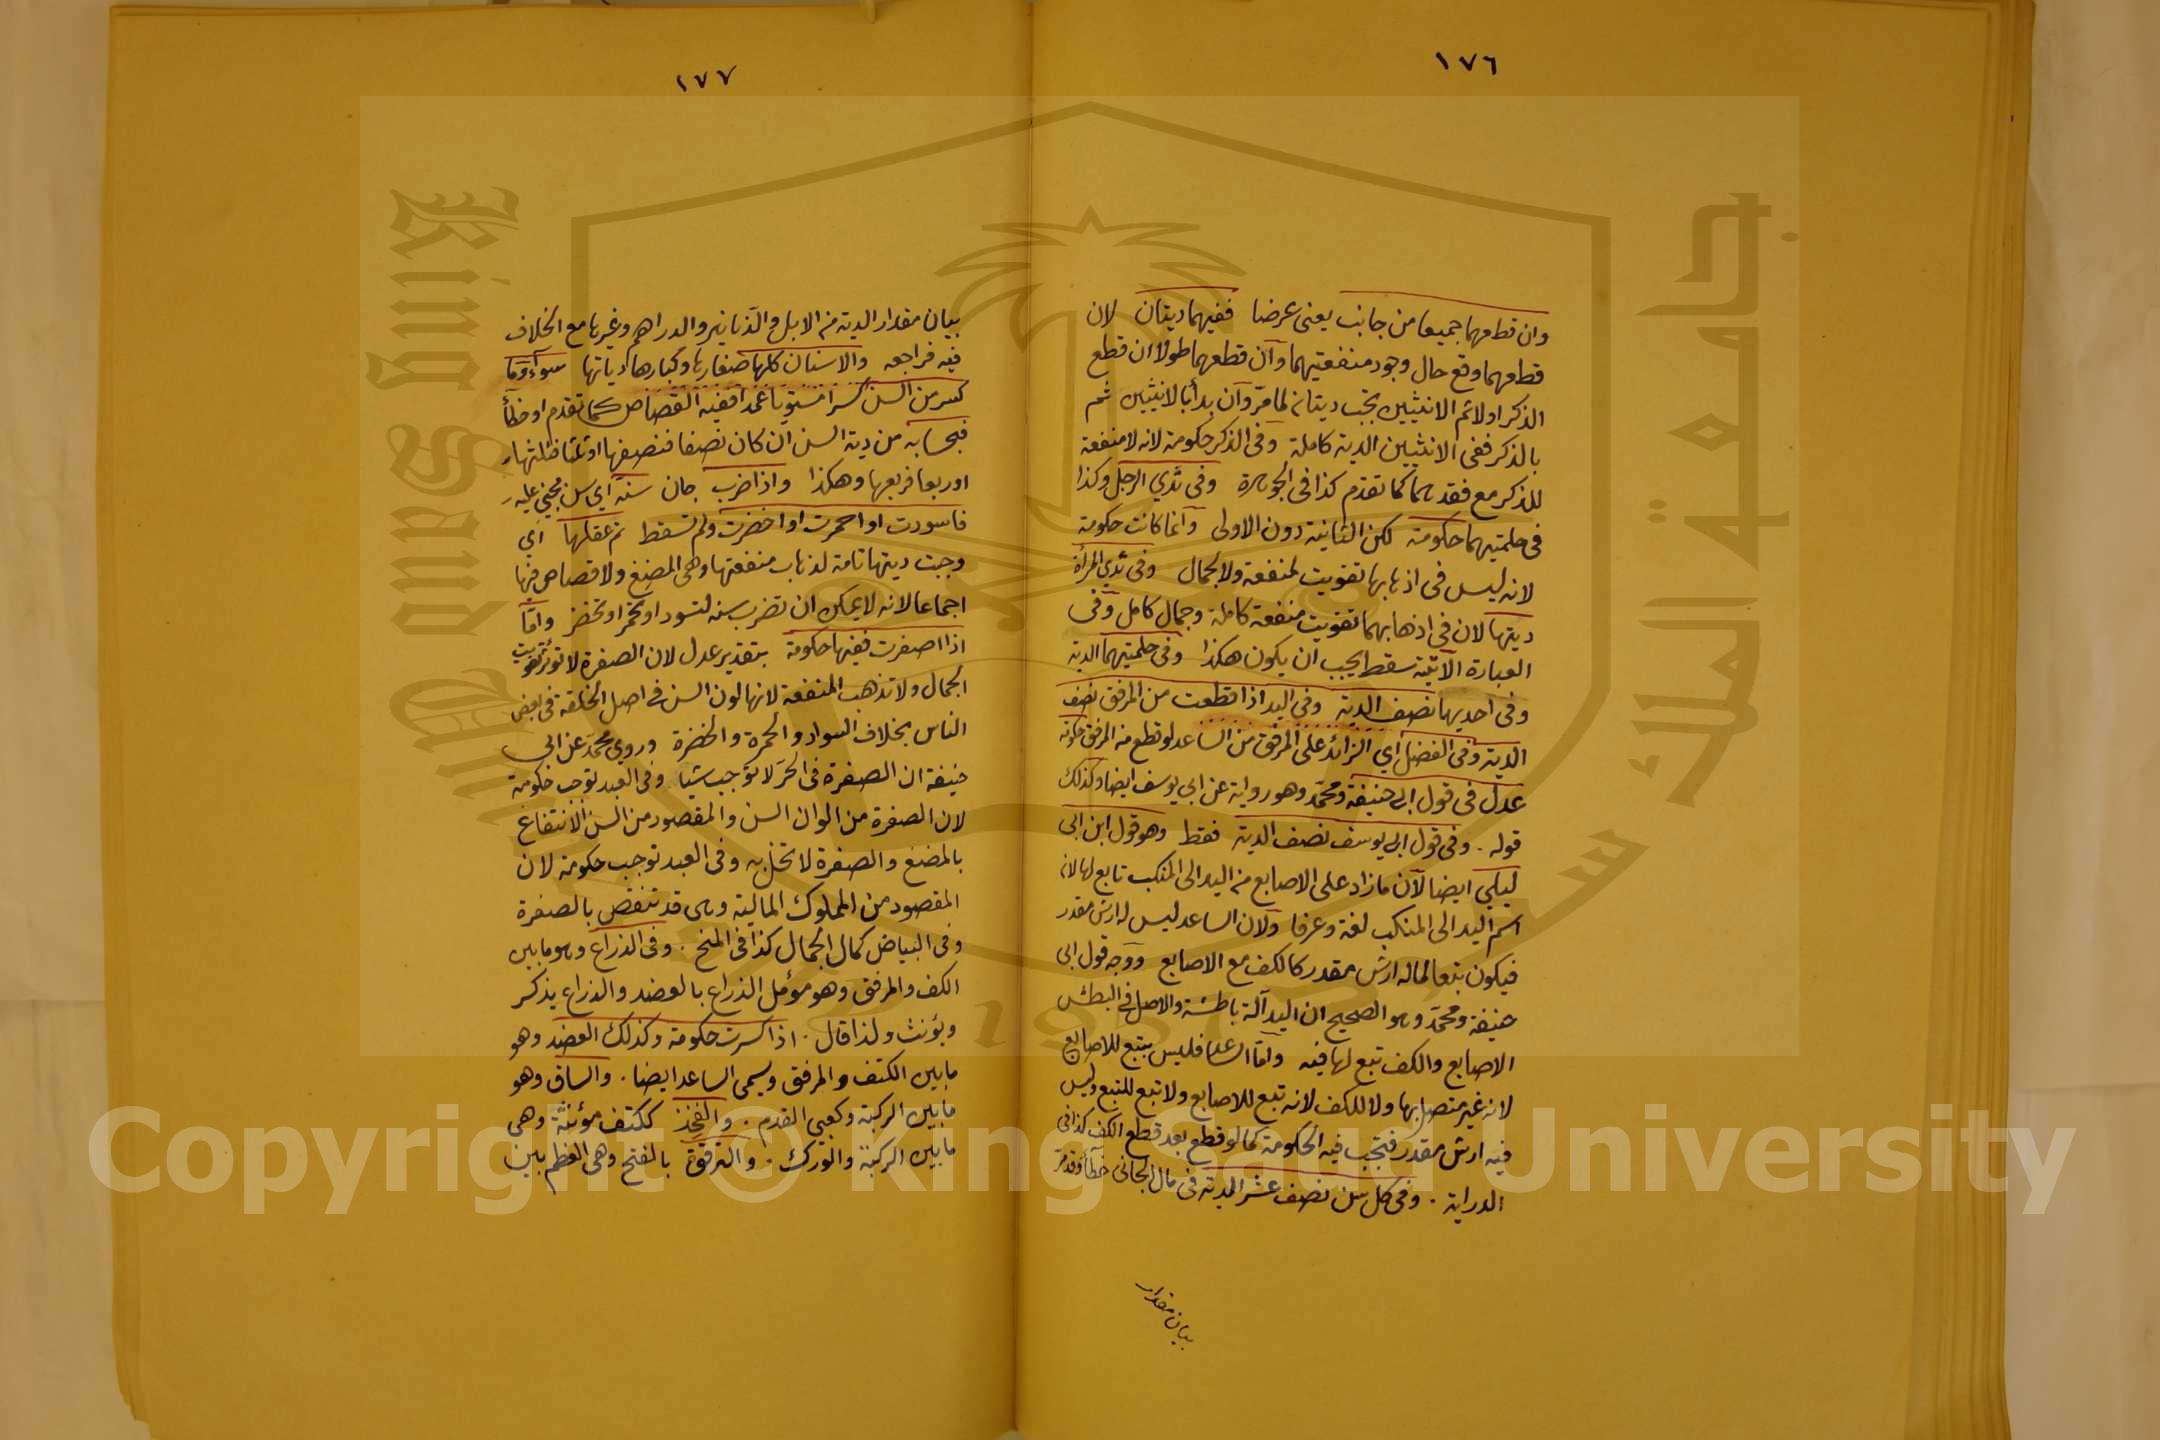 ١٧٦
وان قطعهما جميعا من جانب يعنى عرضا ففيهما ديتان لان
قطعهما وقع حال وجود منفعتيهما وآن قطعهما طولا ان قطع
الذكر اولا ثم الانثيين تجب ديتان لما مرّ وآن بدأ بالانثيين ثم
بالذكر ففى الانثيين الدية كاملة وفى الذكر حكومة لانه لا منفعة
للذكر مع فقدهما كما تقدم كذا فى الجوهرة وفى ثدي الرجل وكذا
فى حلمتيهما حكومة لكن الثانية دون الاولى وآنما كانت حكومة
لانه ليس فى اذهابها تفويت لمنفعة ولا لجمال وفى ثدي المرأة
ديتها لان فى اذهابهما تفويت منفعة كاملة وجمال كامل وفى
العبارة الآتية سقط يجب ان يكون هكذا وفى حلمتيهما الدية
وفى احديهما نصف الدية وفى اليد اذا قطعت من المرفق نصف
الدية وفى الفضل اي الزائد على المرفق من الساعد لو قطع من المرفق حكومة
عدل فى قول ابى حنيفة ومحمّد وهو رواية عن ابي يوسف ايضا وكذلك
قوله . وفى قول ابى يوسف نصف الدية فقط وهو قول ابن ابى
ليلي ايضا لآن ما زاد على الاصابع من اليد الى المنكب تابع لها لان
اسم اليد الى المنكب لغة وعرفا ولان الساعد ليس له ارش مقدر
فيكون تبعا لما له ارش مقدر كالكف مع الاصابع ووجه قول ابى
حنيفة ومحمّد وهو الصحيح ان اليد آلة باطشة والاصل فى البطش
الاصابع والكف تبع لها فيه وآمّا الساعد فليس يتبع للاصابع
لانه غير متصل بها ولا للكف لانه تبع للاصابع ولا تبع للتبع وليس
فيه ارش مقدر فتجب فيه الحكومة كما لو قطع بعد قطع الكف كذا فى
الدراية . وفى كل سن نصف عشر الدية فى مال الجانى خطأ وقدمرّ
بيان مقدار
١٧٧
بيان مقدار الدية من الابل والدّنانير والدراهم وغيرها مع الخلاف
فيه فراجعه والاسنان كلها صغارها وكبارها دياتها سواء وما
كسر من السن كسرا مستويا عمدا ففيه القصاص كما تقدم او خطأ
فبحسابه من دية السن ان كان نصفا فنصفها او ثلثا فثلثها
او ربعا فربعها وهكذا واذا ضرب جان سنه اي سن مجني عليه
فاسودت او احمرت او اخضرت ولم تسقط تم عقلها اى
وجبت ديتها تامة لذهاب منفعتها وهى المضغ ولا قصاص فيها
اجماعا لانه لا يمكن ان تضرب سنه لتسود او تحمرّ او تخضر وامّا
اذا اصفرت ففيها حكومة بتقدير عدل لان الصفرة لا توثر تفويت
الجمال ولا تذهب المنفعة لانها لون السن فى اصل الخلقة فى بعض
الناس بخلاف السواد والحمرة والخضرة وروى محمّد عن ابى
حنيفة ان الصفرة فى الحرّ لا توجب شيئا وفى العبد توجب حكومة
لان الصفرة من الوان السن والمقصود من السن الانتفاع
بالمضغ والصفرة لا تخل به وفى العبد توجب حكومة لان
المقصود من المملوك المالية وهى قد تنقص بالصفرة
وفى البياض كمال الجمال كذا فى المنح . وفى الذراع وهو ما بين
الكف والمرفق وهو موصل الذراع بالعضد والذراع يذكر
ويؤنث ولذا قال . اذا كسرت حكومة وكذلك العضد وهو
ما بين الكتف والمرفق ويسمى الساعد ايضا . والساق وهو
ما بين الركبة وكعبى القدم . والفخذ ككتف مؤنثة وهى
ما بين الركبة والورك . والترقوة بالفتح وهى العظم بين
جامعة الملك سعود
King Saud University
1957
Copyright © King Saud University